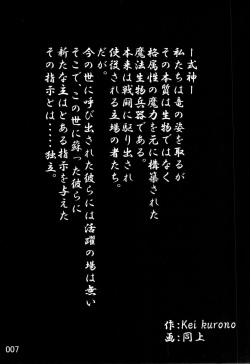 ―式神―
私たちは竜の姿を取るが
その本質は生物ではなく
格属性の魔力を元に構築された
魔法生物兵器である。
本来は戦闘に駆り出され
使役される立場の者たち。
だが、
今の世に呼び出された彼らには活躍の場は無い
そこで、この世に蘇った彼らに
新たな主はとある指示を与えた
その指示とは・・・・・独立。
作:Kei kurono
画:同上
007